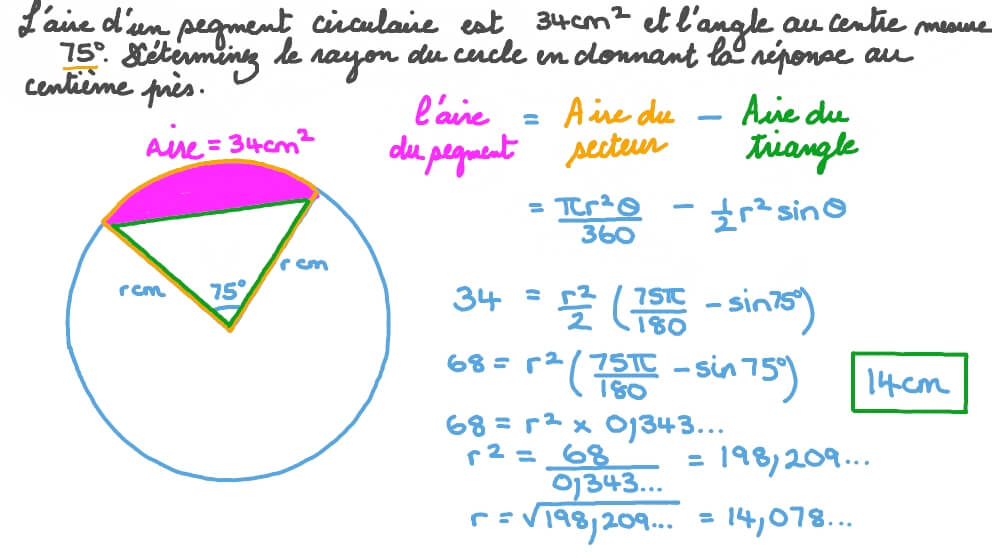 L'aire d'un segment circulaire est 34cm² et l'angle au centre mesure
75°. Déterminez le rayon du cercle en donnant la réponse au
centième près.
l'aire du segment = Aire du secteur − Aire du triangle
Aire = 34cm²
= πr²θ/360 − 1/2 r² sin θ
r cm
r cm
75°
34 = r²/2 (75π/180 − sin 75°)
68 = r² (75π/180 − sin 75°)
14cm
68 = r² × 0,343...
r² = 68/0,343... = 198,209...
r = √198,209... = 14,078...